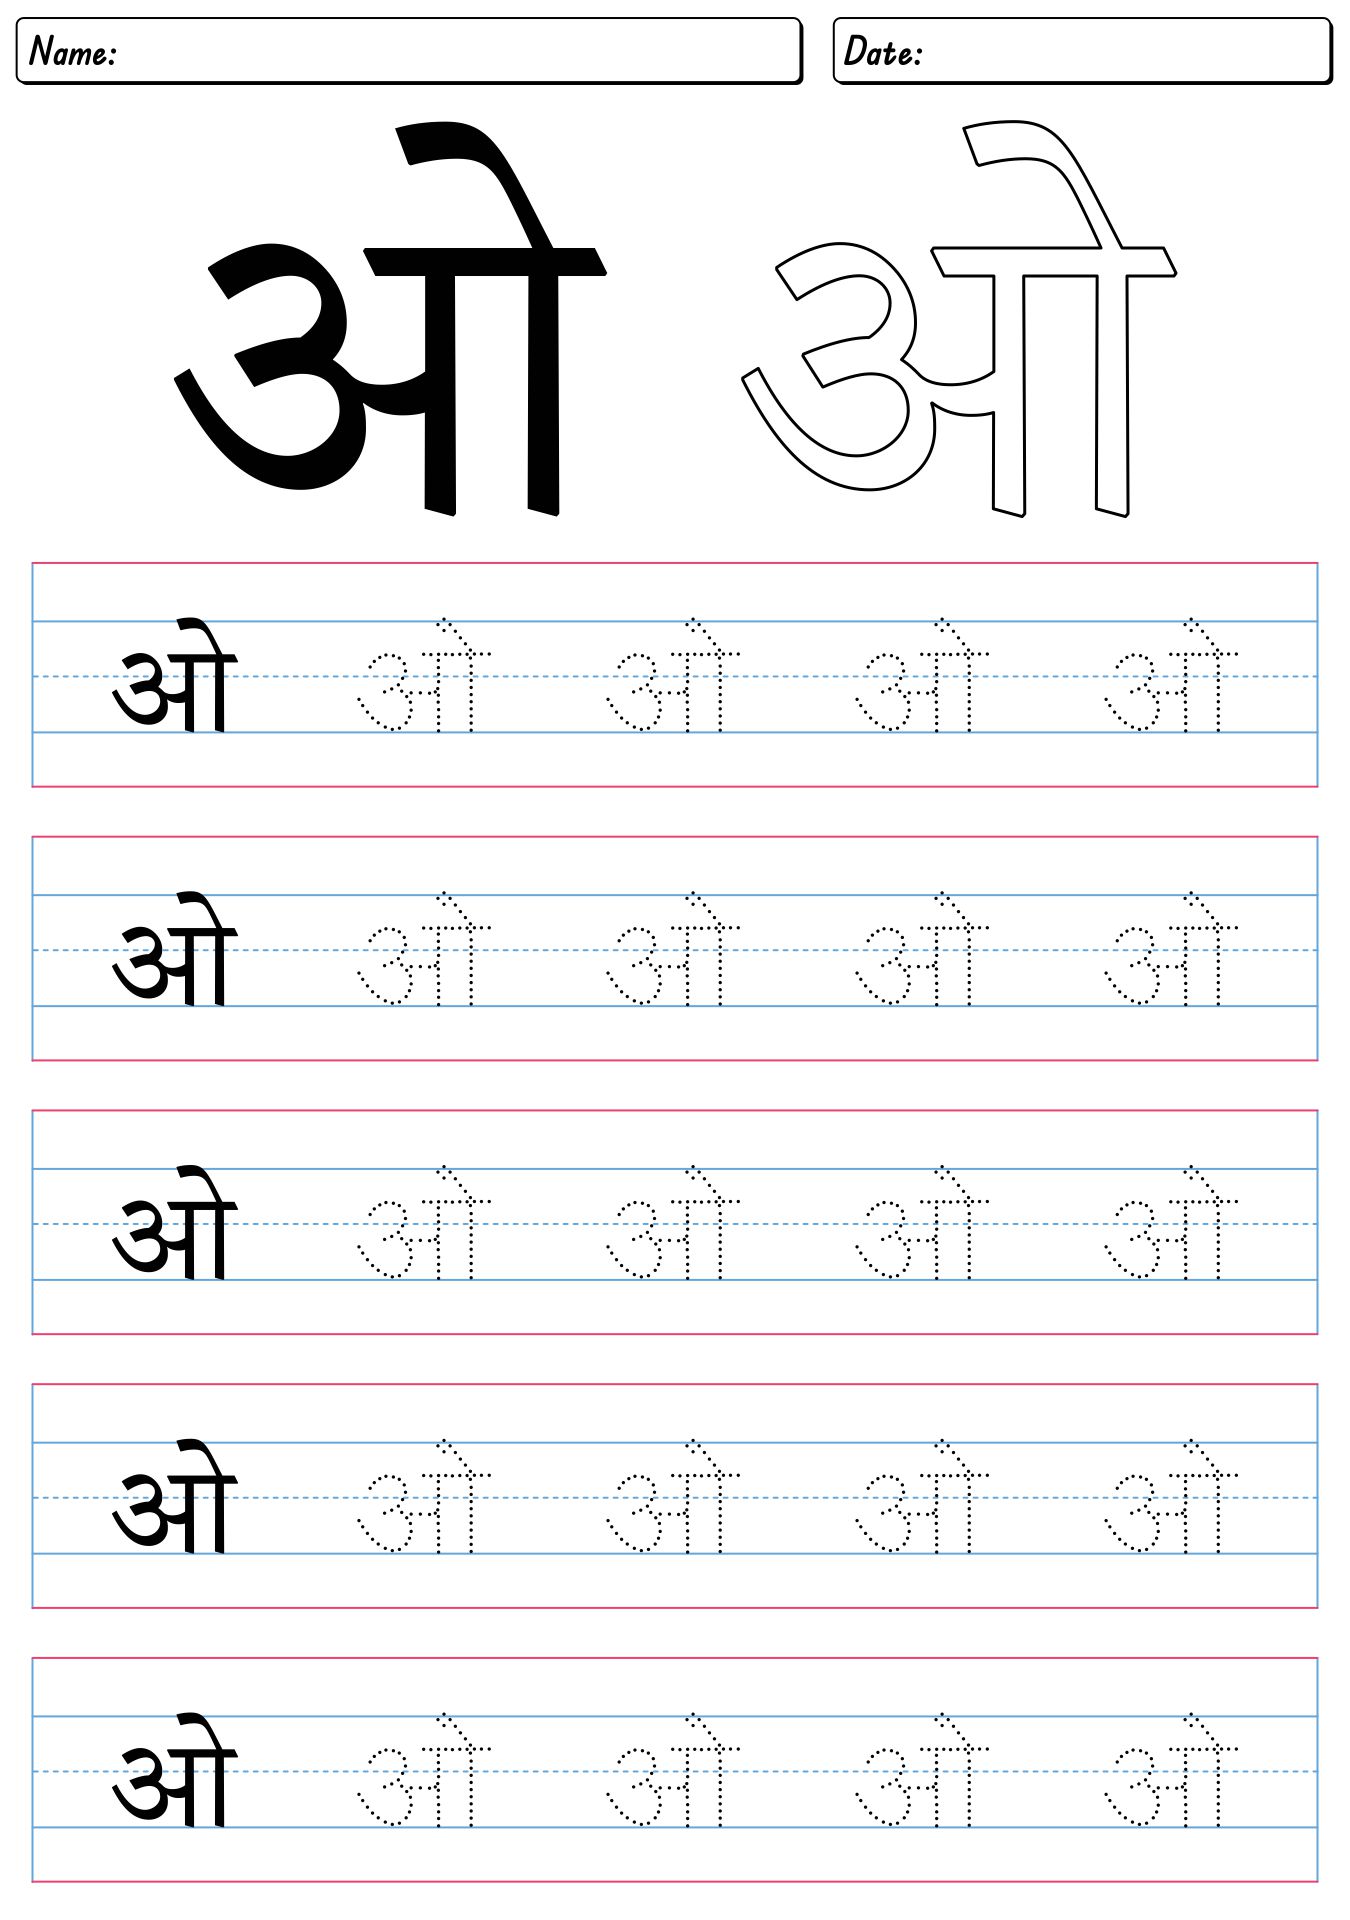 Name: Date:
ओ ओ
ओ ओ ओ ओ ओ
ओ ओ ओ ओ ओ
ओ ओ ओ ओ ओ
ओ ओ ओ ओ ओ
ओ ओ ओ ओ ओ